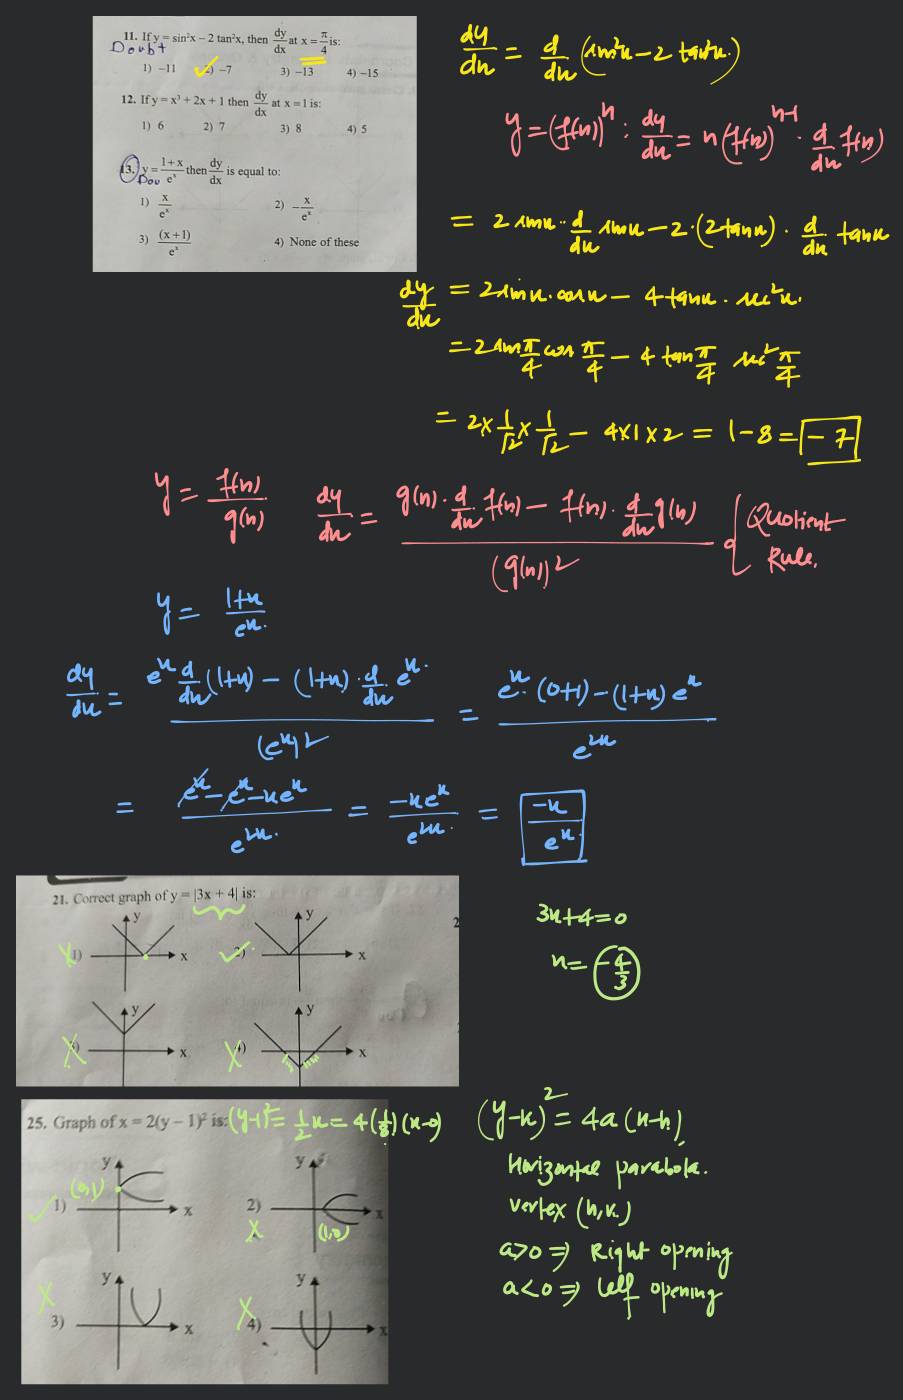 11. If y = sin²x – 2 tan²x, then dy/dx at x = π/4 is:
Doubt
1) –11 2) –7 3) –13 4) –15
12. If y = x³ + 2x + 1 then dy/dx at x = 1 is:
1) 6 2) 7 3) 8 4) 5
13. y = (1+x)/eˣ then dy/dx is equal to:
Dou
1) x/eˣ 2) –x/eˣ
3) (x+1)/eˣ 4) None of these
dy/dx = d/dx (sin²x – 2 tan²x)
y = (f(x))ⁿ : dy/dx = n(f(x))ⁿ⁻¹ · d/dx f(x)
= 2 sinx · d/dx sinx – 2·(2tanx) · d/dx tanx
dy/dx = 2sinx·cosx – 4tanx·sec²x.
= 2 sin π/4 cos π/4 – 4 tan π/4 sec² π/4
= 2 × 1/√2 × 1/√2 – 4×1×2 = 1 – 8 = –7
y = f(x)/g(x) dy/dx = (g(x)·d/dx f(x) – f(x)·d/dx g(x))/(g(x))² { Quotient Rule.
y = (1+x)/eˣ.
dy/dx = (eˣ d/dx (1+x) – (1+x)·d/dx eˣ.)/(eˣ)² = (eˣ·(0+1) – (1+x)eˣ)/e²ˣ
= (eˣ – eˣ – xeˣ)/e²ˣ. = –xeˣ/e²ˣ. = –x/eˣ.
21. Correct graph of y = |3x + 4| is:
1) y x 2) y x
3) y x 4) y x
3x+4=0
x = –4/3
25. Graph of x = 2(y – 1)² is: (y-1)² = 1/2 x = 4(1/8)(x-0)
1) y x (0,1) 2) y x (1,0)
3) y x 4) y x
(y-k)² = 4a(x-h)
Horizontal parabola.
Vertex (h,k)
a>0 ⇒ Right opening
a<0 ⇒ left opening